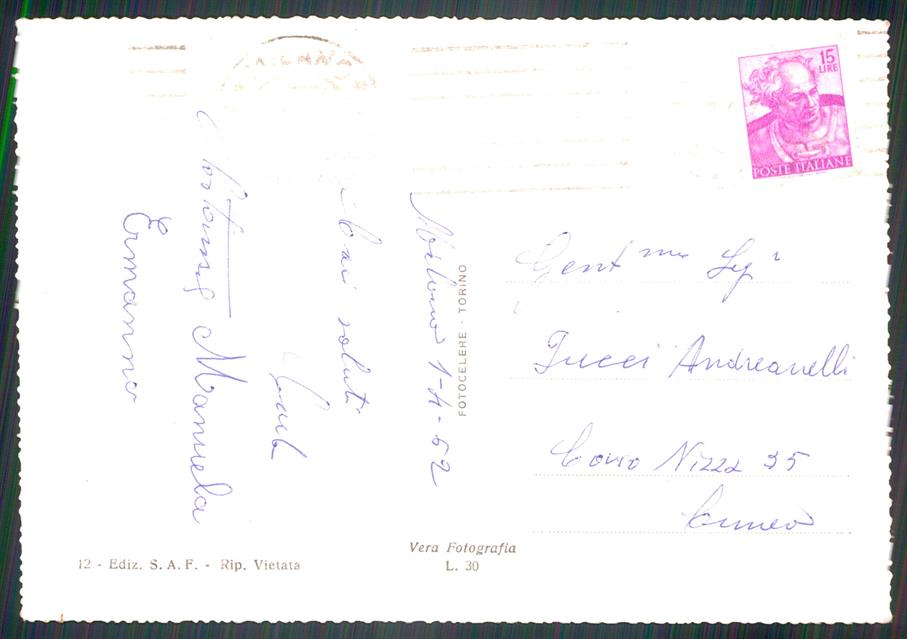 15
LIRE
POSTE ITALIANE
Milano 1-4-62
Cari saluti
Manuela
Ermanno
FOTOCELERE - TORINO
Gent ma Sig
Tucci Andreanelli
Corso Nizza 35
Cuneo
12 - Ediz. S. A. F. - Rip. Vietata
Vera Fotografia
L. 30